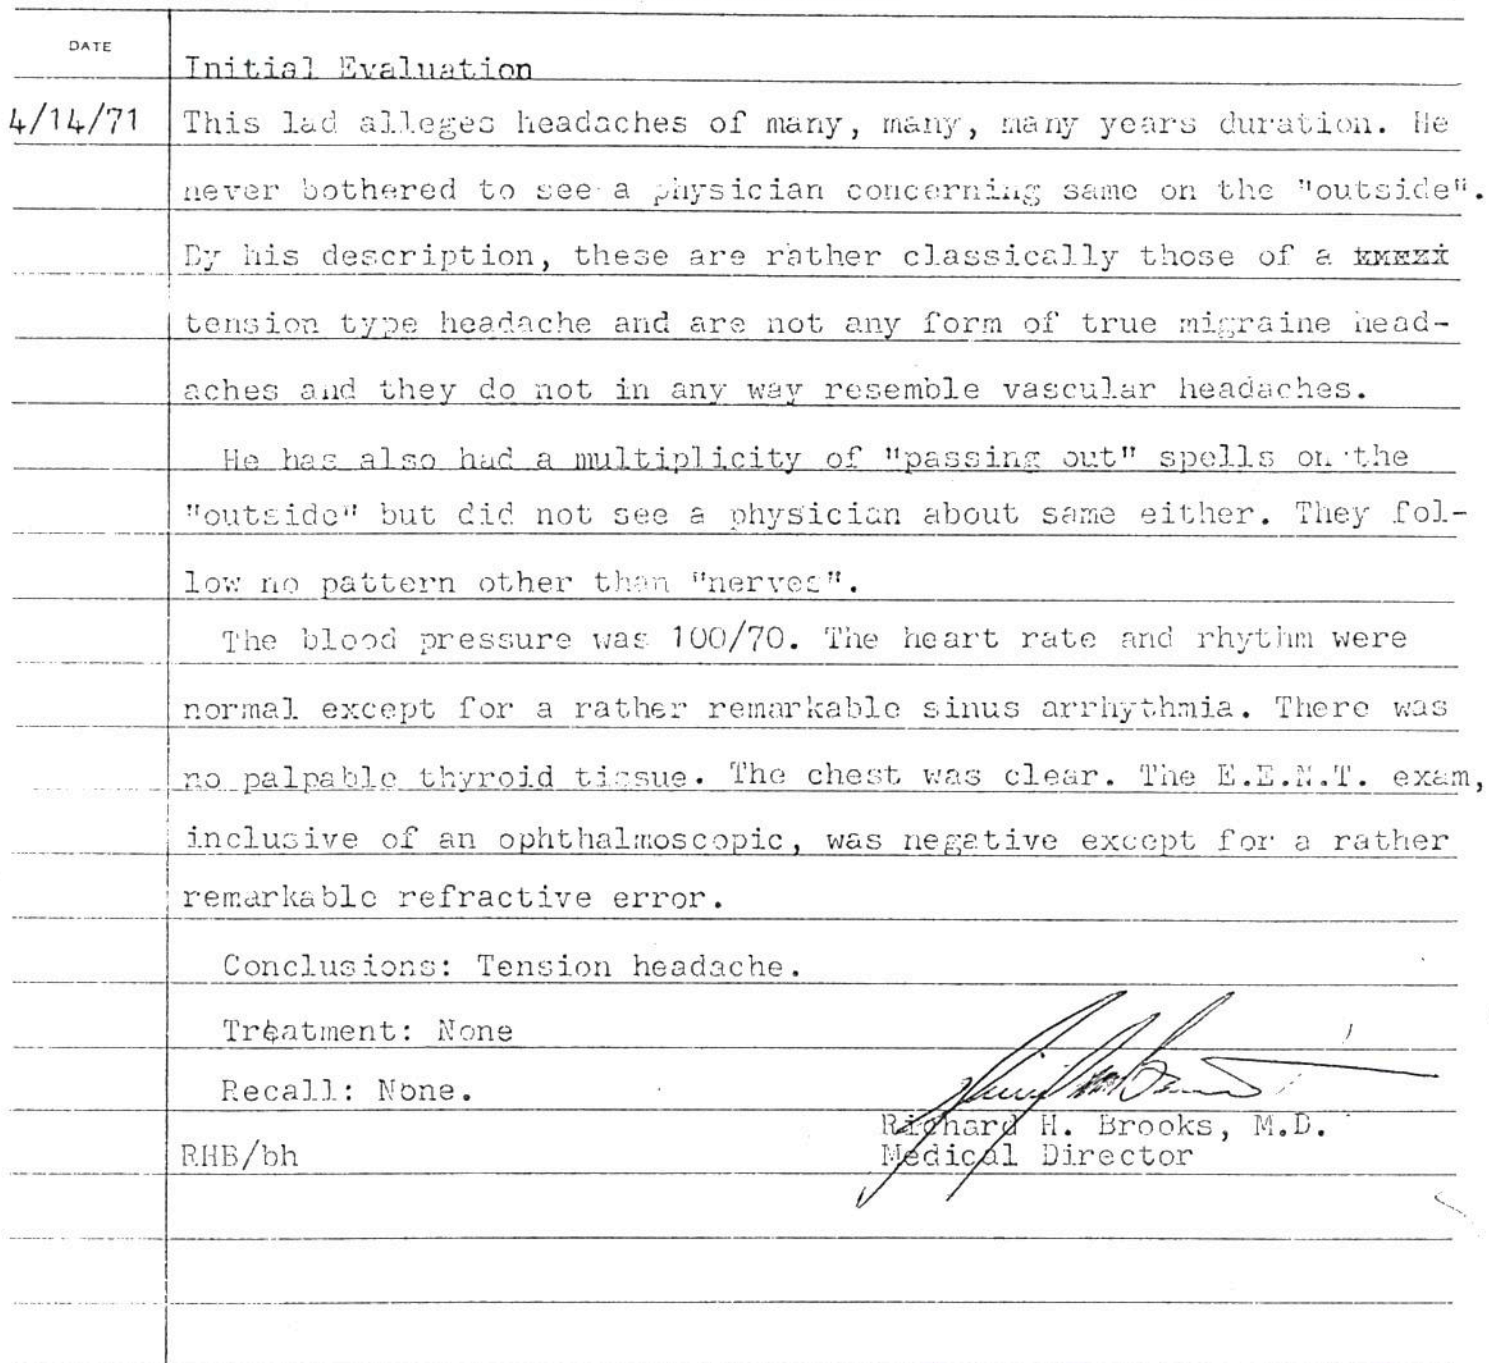 DATE
Initial Evaluation
4/14/71 This lad alleges headaches of many, many, many years duration. He
never bothered to see a physician concerning same on the "outside".
By his description, these are rather classically those of a
tension type headache and are not any form of true migraine head-
aches and they do not in any way resemble vascular headaches.
He has also had a multiplicity of "passing out" spells on the
"outside" but did not see a physician about same either. They fol-
low no pattern other than "nerves".
The blood pressure was 100/70. The heart rate and rhythm were
normal except for a rather remarkable sinus arrhythmia. There was
no palpable thyroid tissue. The chest was clear. The E.E.N.T. exam,
inclusive of an ophthalmoscopic, was negative except for a rather
remarkable refractive error.
Conclusions: Tension headache.
Treatment: None
Recall: None.
Richard H. Brooks, M.D.
RHB/bh Medical Director